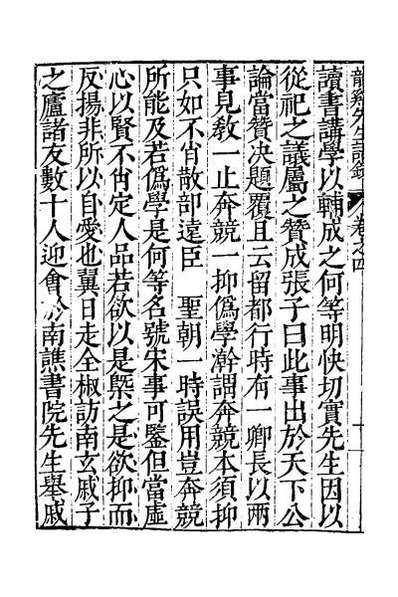 龍谿先生語錄 卷之四
讀書講學以輔成之何等明快切實先生因以
從祀之議屬之贊成張子曰此事出於天下公
論當贊決題覆且云留都行時有一卿長以兩
事見敎一止奔競一抑僞學澣謂奔競本須抑
只如不肖散部遠臣 聖朝一時誤用豈奔競
所能及若僞學是何等名號宋事可鑒但當虛
心以賢不肖定人品若欲以是槩之是欲抑而
反揚非所以自愛也翼日走全椒訪南玄戚子
之廬諸友數十人迎會於南譙書院先生舉戚